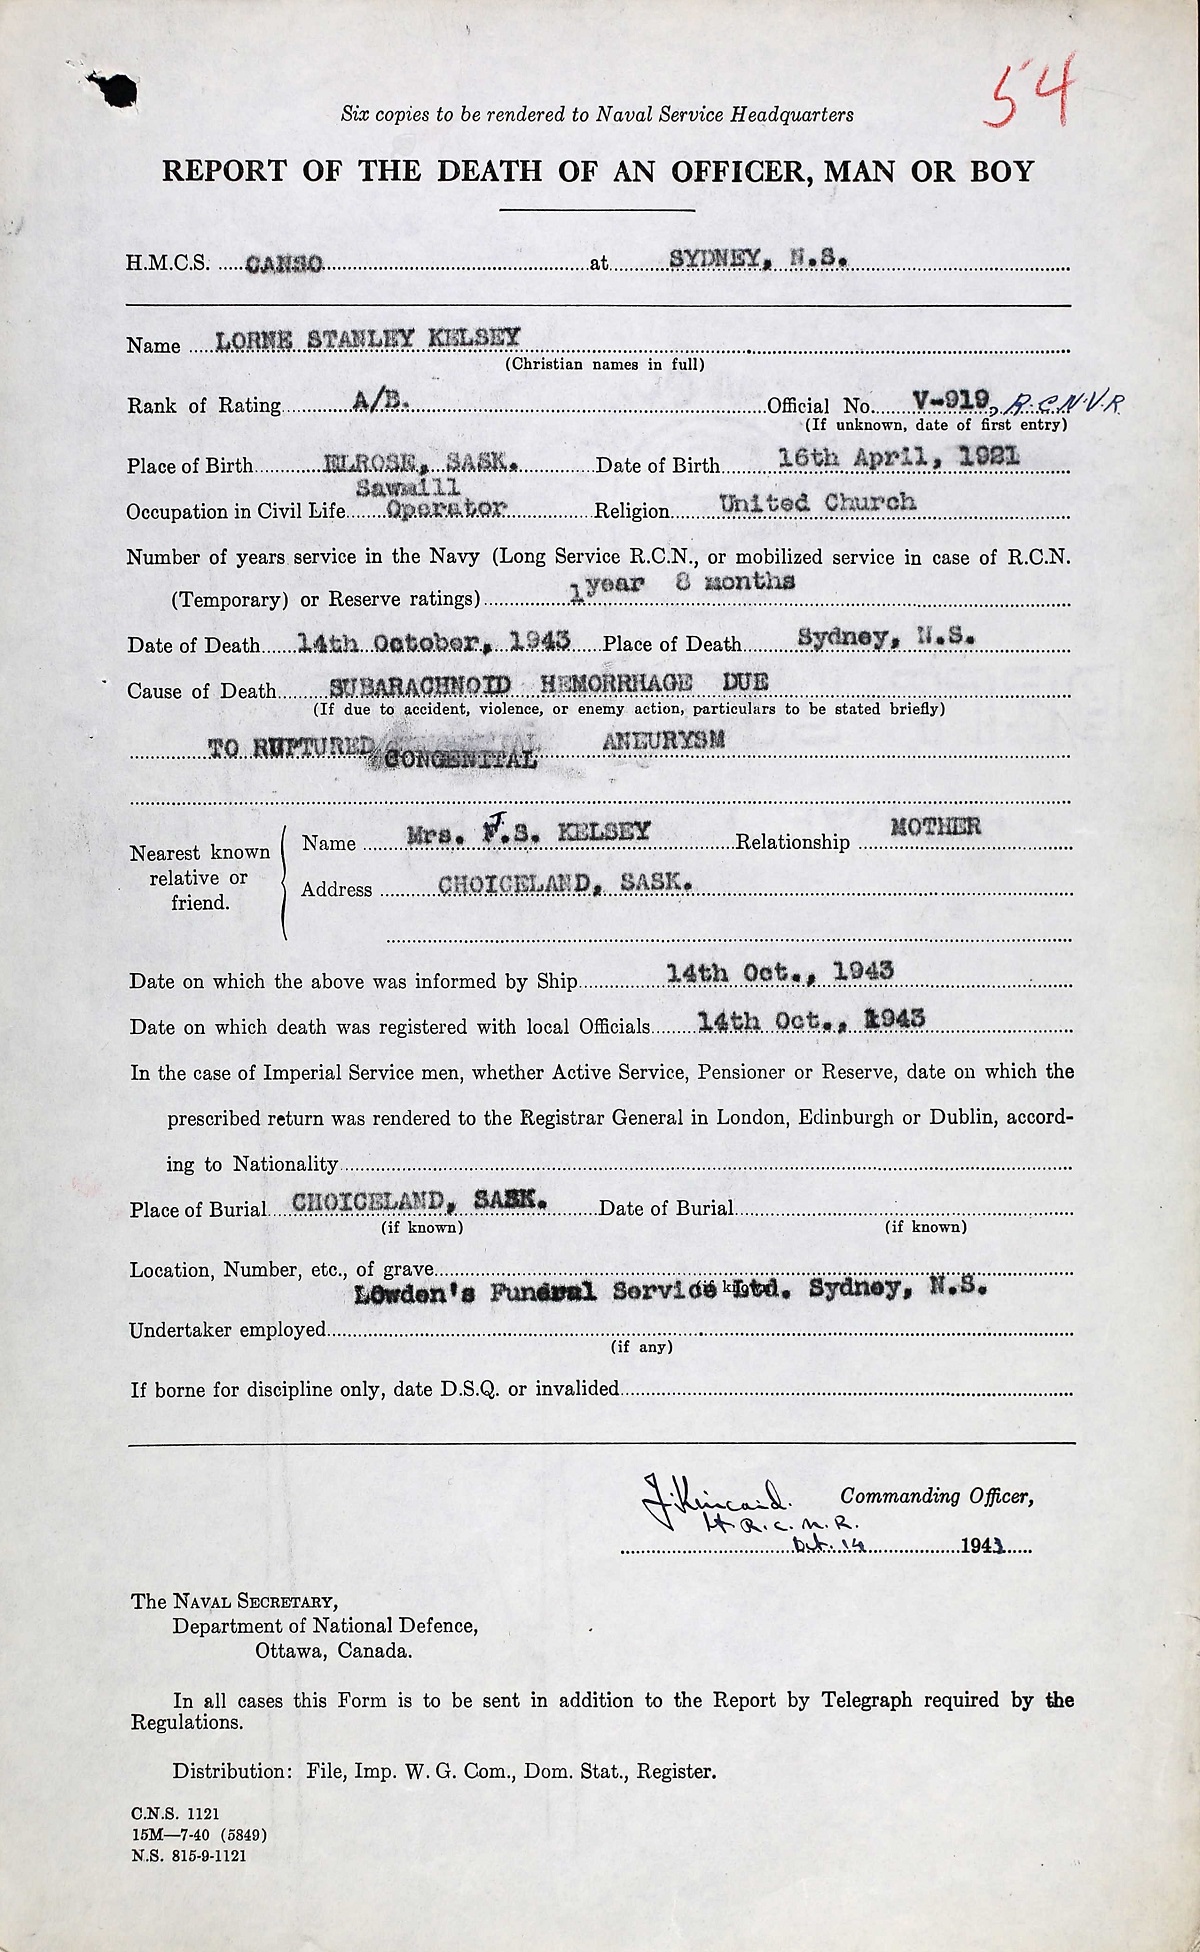 54
Six copies to be rendered to Naval Service Headquarters
REPORT OF THE DEATH OF AN OFFICER, MAN OR BOY
H.M.C.S. CANSO at SYDNEY, N.S.
Name LORNE STANLEY KELSEY
(Christian names in full)
Rank of Rating A/B. Official No. V-919, R.C.N.V.R.
(If unknown, date of first entry)
Place of Birth ELROSE, SASK. Date of Birth 16th April, 1921
Sawmill
Occupation in Civil Life Operator Religion United Church
Number of years service in the Navy (Long Service R.C.N., or mobilized service in case of R.C.N.
(Temporary) or Reserve ratings) 1 year 8 months
Date of Death 14th October, 1943 Place of Death Sydney, N.S.
Cause of Death SUBARACHNOID HEMORRHAGE DUE
(If due to accident, violence, or enemy action, particulars to be stated briefly)
TO RUPTURED CONGENITAL ANEURYSM
Nearest known relative or friend.
Name Mrs. J.S. KELSEY Relationship MOTHER
Address CHOICELAND, SASK.
Date on which the above was informed by Ship 14th Oct., 1943
Date on which death was registered with local Officials 14th Oct., 1943
In the case of Imperial Service men, whether Active Service, Pensioner or Reserve, date on which the
prescribed return was rendered to the Registrar General in London, Edinburgh or Dublin, accord-
ing to Nationality
Place of Burial CHOICELAND, SASK. Date of Burial
(if known) (if known)
Location, Number, etc., of grave
(if known)
LOwden's Funeral Service Ltd. Sydney, N.S.
Undertaker employed
(if any)
If borne for discipline only, date D.S.Q. or invalided
J. Kincaid. Commanding Officer,
Lt R.C.N.R.
Oct. 14 1943
The NAVAL SECRETARY,
Department of National Defence,
Ottawa, Canada.
In all cases this Form is to be sent in addition to the Report by Telegraph required by the
Regulations.
Distribution: File, Imp. W. G. Com., Dom. Stat., Register.
C.N.S. 1121
15M—7-40 (5849)
N.S. 815-9-1121